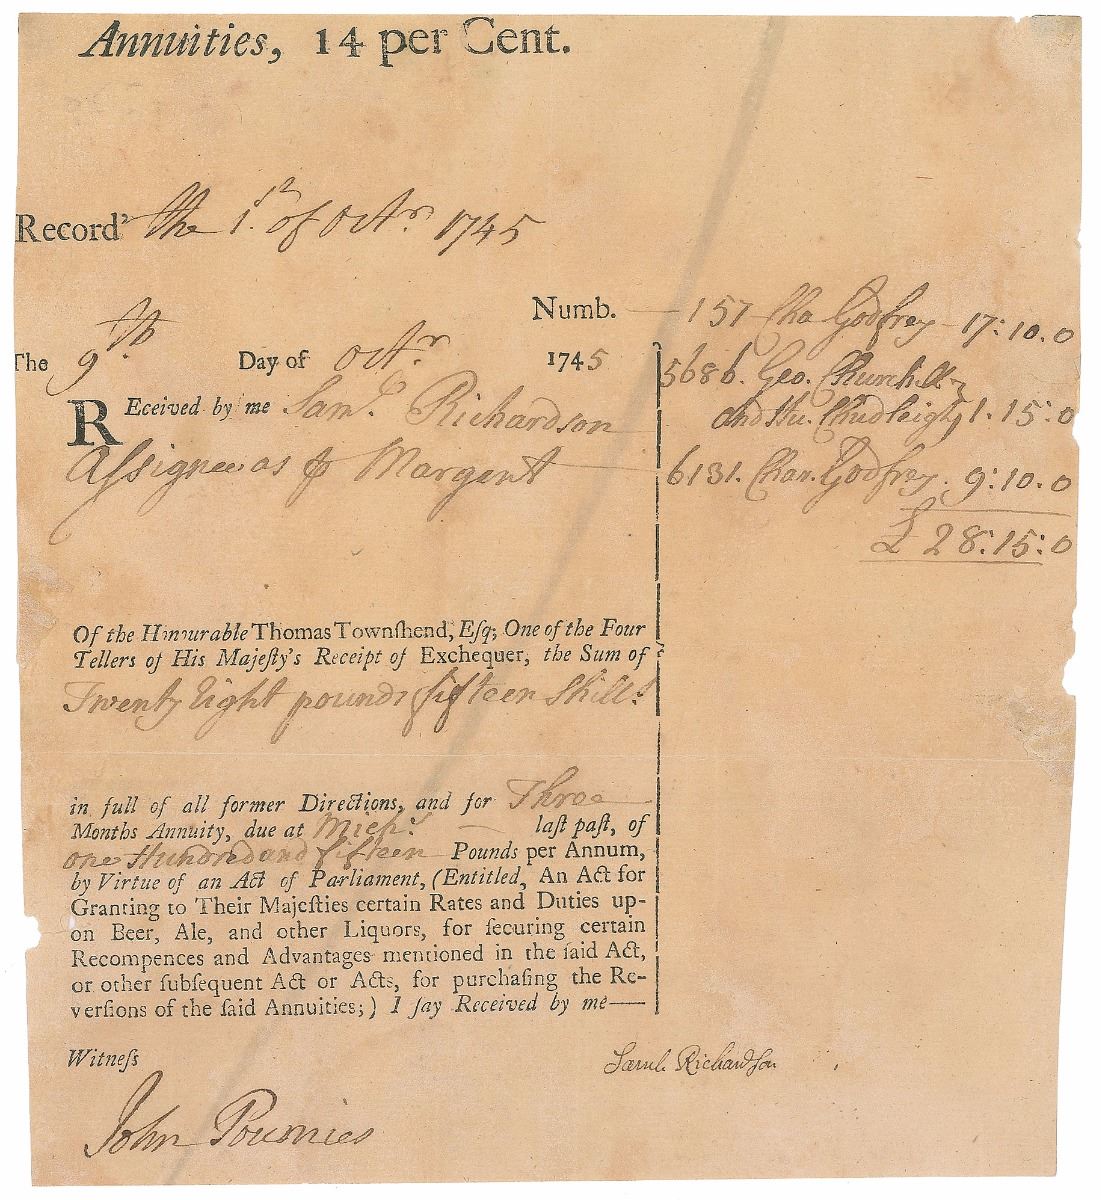 Annuities, 14 per Cent.
Record^d the 1st of Octr. 1745
Numb. — 157 Cha Godfrey — 17:10.0
The 9th. Day of Octr. 1745
5686. Geo. Churchill
and Hu. Chudleigh 1.15:0
REceived by me Saml. Richardson
Assignee as ⅌ Margent
6131. Char. Godfrey. 9:10.0
£ 28:15:0
Of the Honourable Thomas Townſhend, Eſq; One of the Four
Tellers of His Majeſty's Receipt of Exchequer, the Sum of
Twenty Eight pounds fifteen Shills.
in full of all former Directions, and for Three
Months Annuity, due at Michs. laſt paſt, of
one Hundred and fifteen Pounds per Annum,
by Virtue of an Act of Parliament, (Entitled, An Act for
Granting to Their Majeſties certain Rates and Duties up-
on Beer, Ale, and other Liquors, for ſecuring certain
Recompences and Advantages mentioned in the ſaid Act,
or other ſubſequent Act or Acts, for purchaſing the Re-
verſions of the ſaid Annuities;) I ſay Received by me—
Witneſs
Saml. Richardſon
John